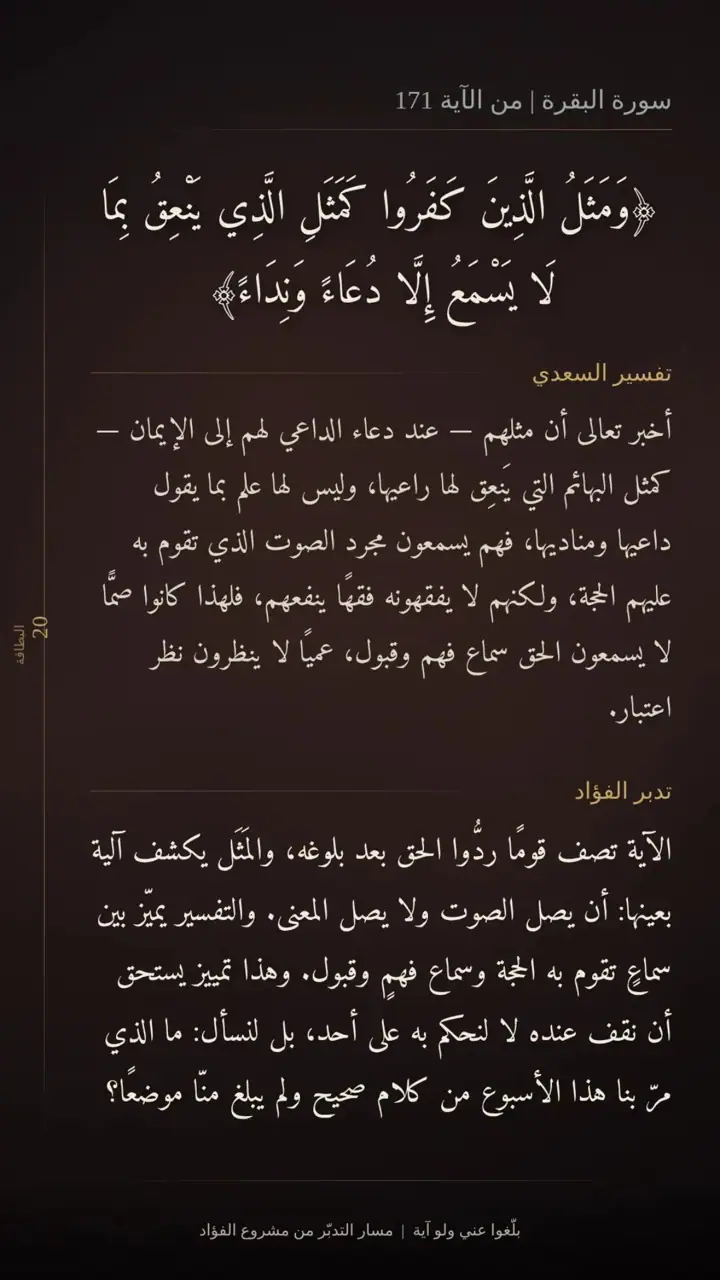 سورة البقرة | من الآية 171
﴿وَمَثَلُ الَّذِينَ كَفَرُوا كَمَثَلِ الَّذِي يَنْعِقُ بِمَا
لَا يَسْمَعُ إِلَّا دُعَاءً وَنِدَاءً﴾
تفسير السعدي
أخبر تعالى أن مثلهم — عند دعاء الداعي لهم إلى الإيمان —
كمثل البهائم التي يَنعِق لها راعيها، وليس لها علم بما يقول
داعيها ومناديها، فهم يسمعون مجرد الصوت الذي تقوم به
عليهم الحجة، ولكنهم لا يفقهونه فقهًا ينفعهم، فلهذا كانوا صمًّا
لا يسمعون الحق سماع فهم وقبول، عميًا لا ينظرون نظر
اعتبار.
تدبر الفؤاد
الآية تصف قومًا ردُّوا الحق بعد بلوغه، والمَثَل يكشف آلية
بعينها: أن يصل الصوت ولا يصل المعنى. والتفسير يميّز بين
سماعٍ تقوم به الحجة وسماع فهمٍ وقبول. وهذا تمييز يستحق
أن نقف عنده لا لنحكم به على أحد، بل لنسأل: ما الذي
مرّ بنا هذا الأسبوع من كلام صحيح ولم يبلغ منّا موضعًا؟
البطاقة
20
بلّغوا عني ولو آية | مسار التدبّر من مشروع الفؤاد